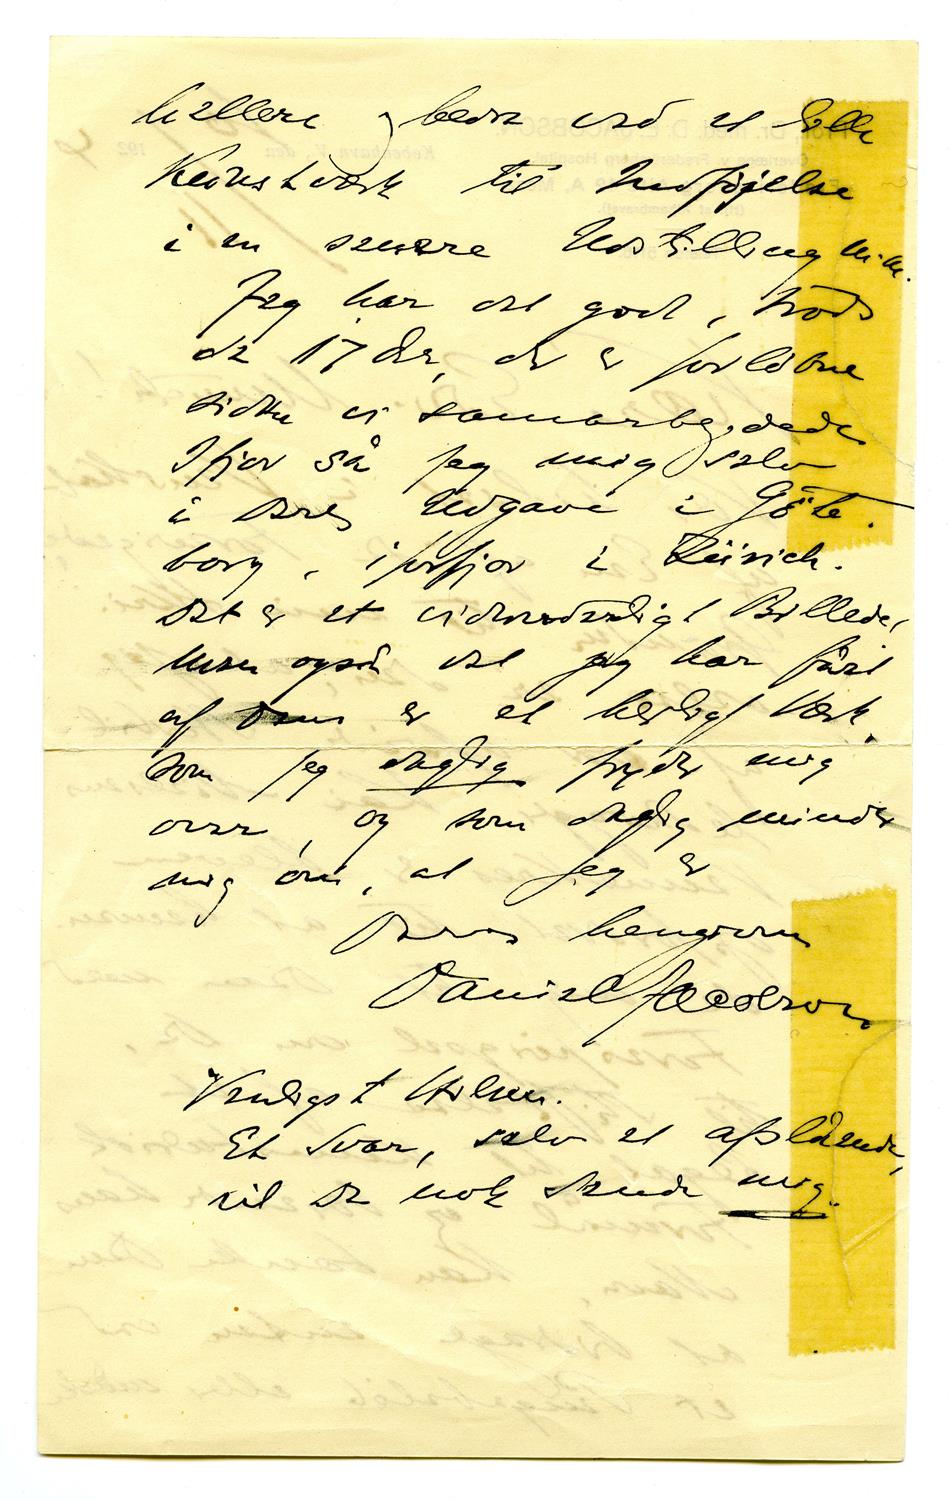 hellere, bedre ved et Ekko
Kunstværk til Indføjelse
i en senere Udstilling m.m.
Jeg har det godt, trods
de 17 Aar, der er forløbne
siden vi samarbejdede.
Ifjor så jeg mig selv
i Deres Udgave i Göte-
borg, i forfjor i Zürich.
Det er et vidunderligt Billede,
men også det jeg har fået
af Dem er et herligt Værk,
som jeg daglig fryder mig
over, og som daglig minder
mig om, at jeg er
Deres hengivne
Daniel Jacobson
Venligst Hilsen.
Et Svar, selv et afslående,
vil De nok sende mig.